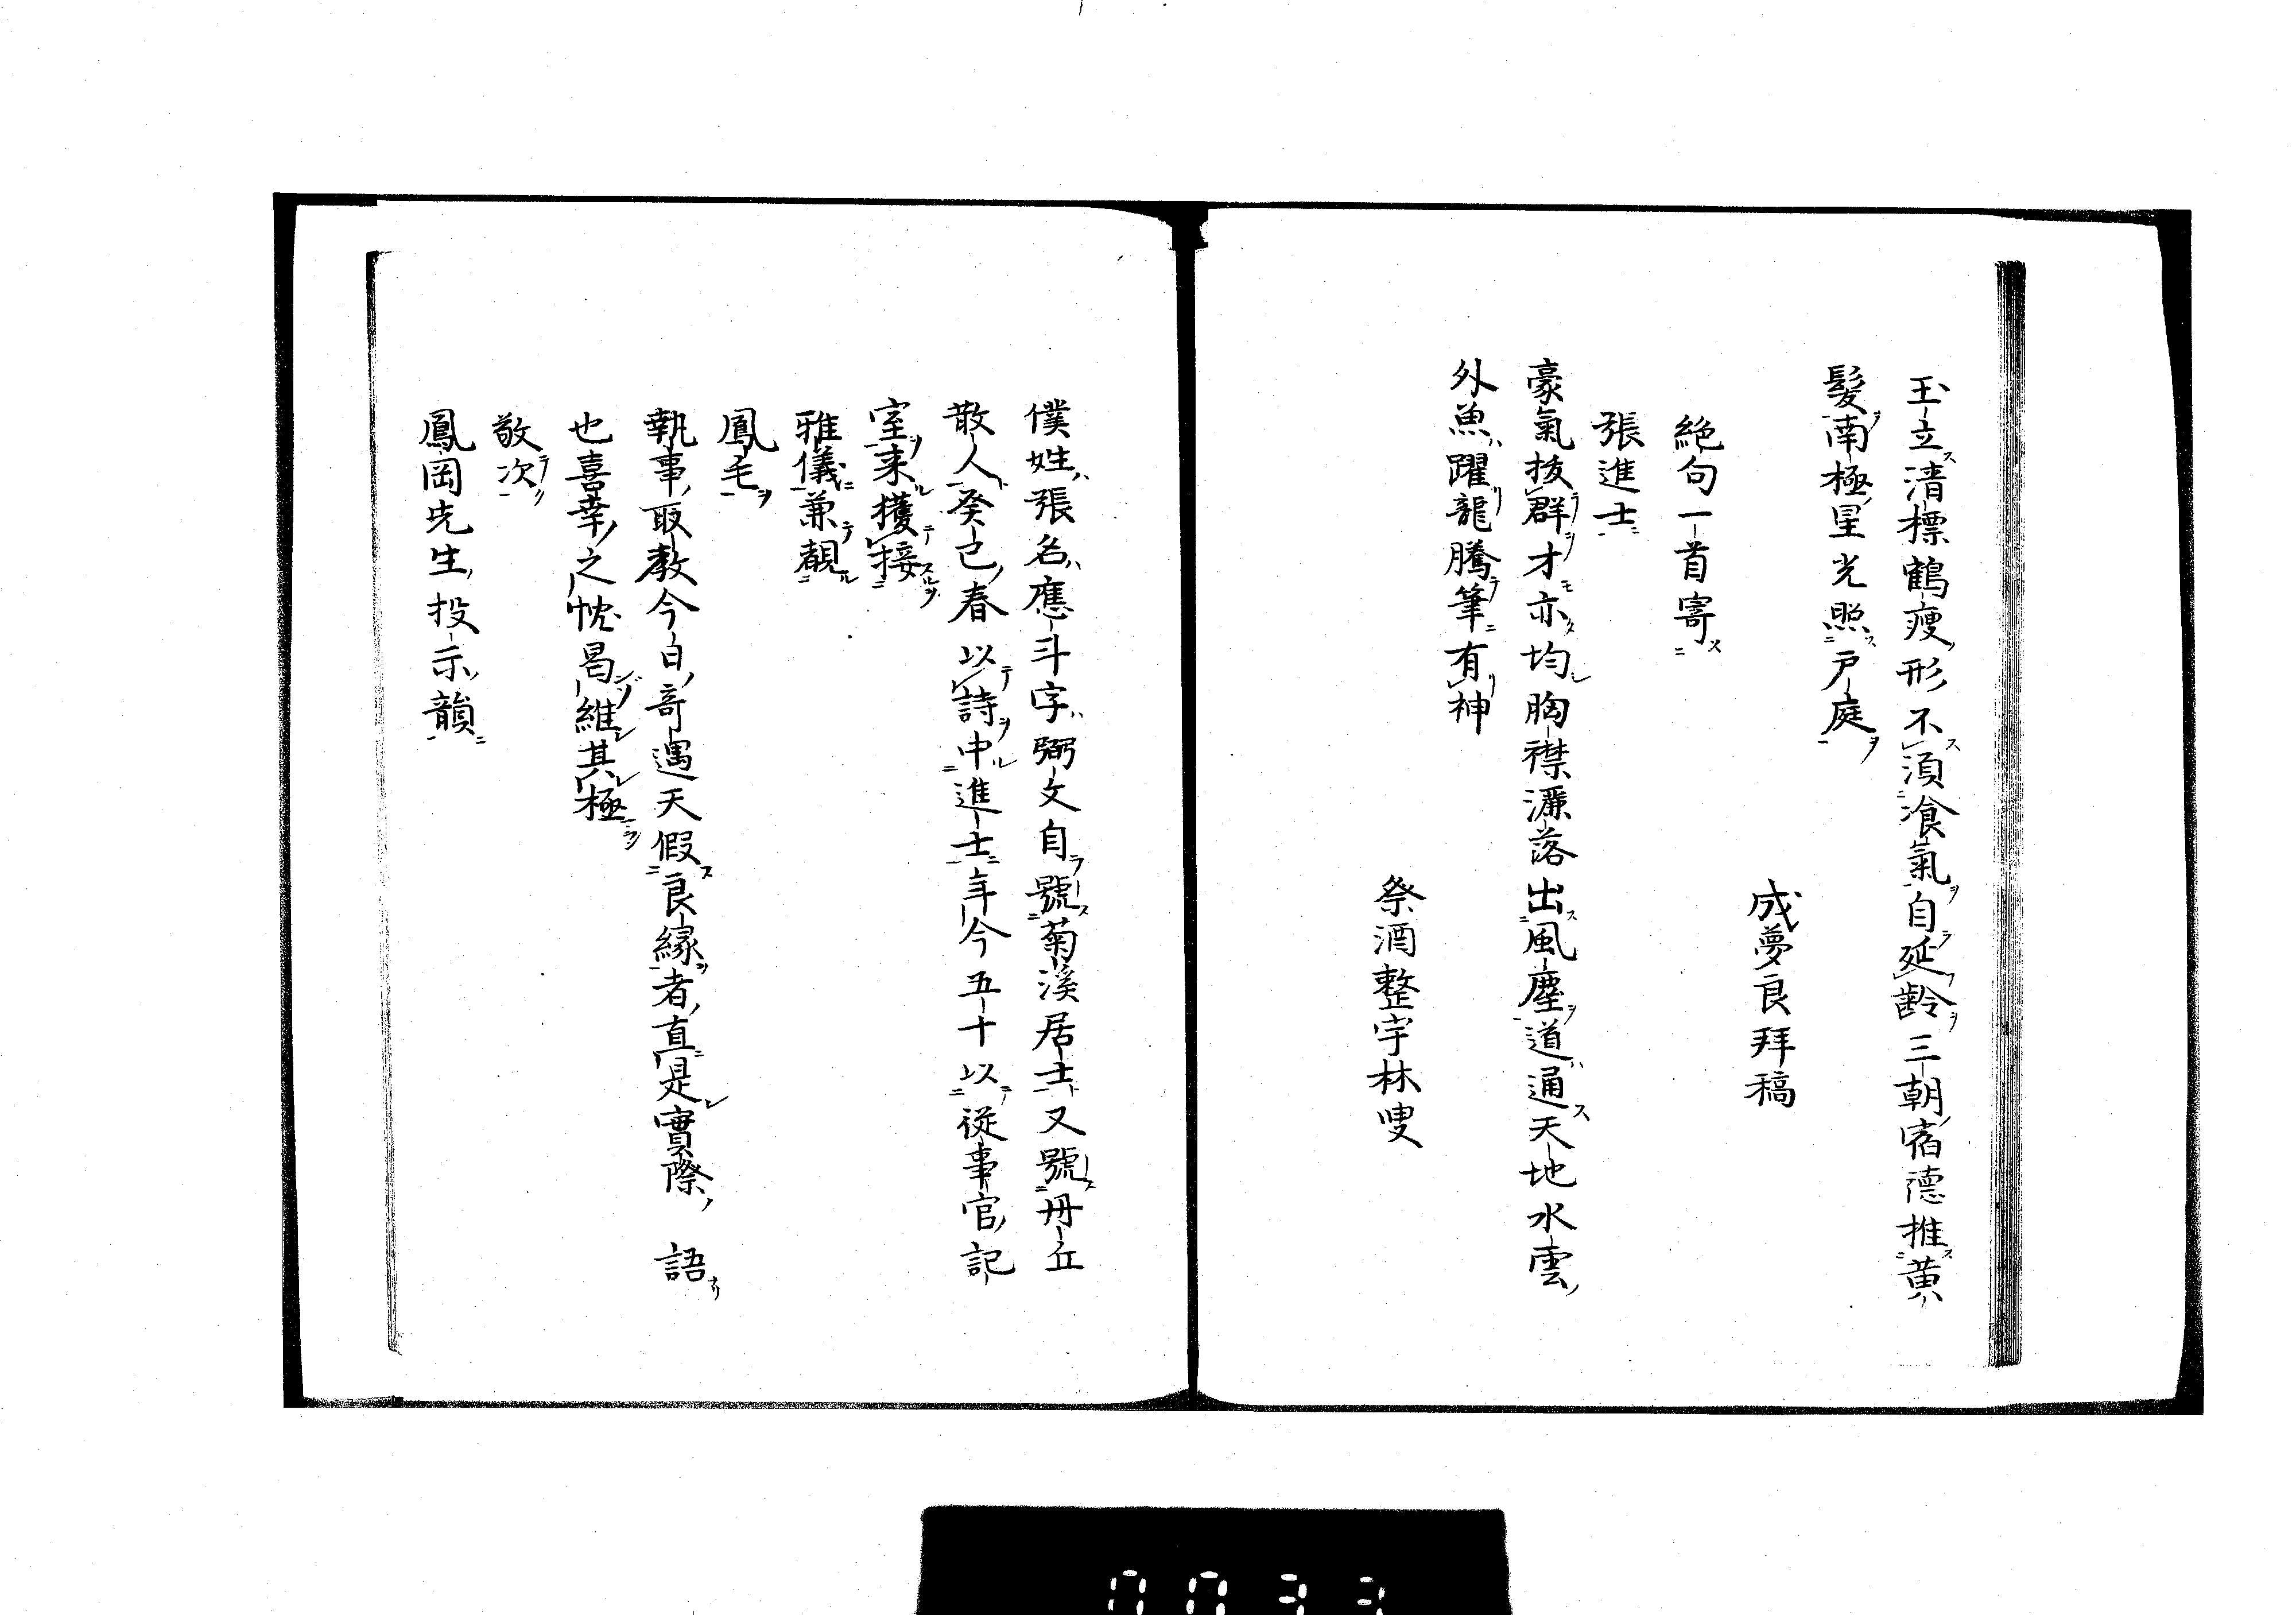 玉立清標鶴瘦形不須飡氣自延齡三朝宿德推黄
髮南極星光照戶庭
成夢良拜稿
絶句一首寄
張進士
豪氣拔群才亦均胸襟濂落出風塵道通天地水雲
外魚躍龍騰筆有神
祭酒整宇林叟
僕姓張名應斗字弼文自號菊溪居士又號丹丘
散人癸巳春以詩中進士年今五十以從事官記
室来獲接
雅儀兼覩
鳳毛
執事取教今日奇遇天假良緣者直是實際語
也喜幸之忱曷維其極
敬次
鳳岡先生投示韻
0033